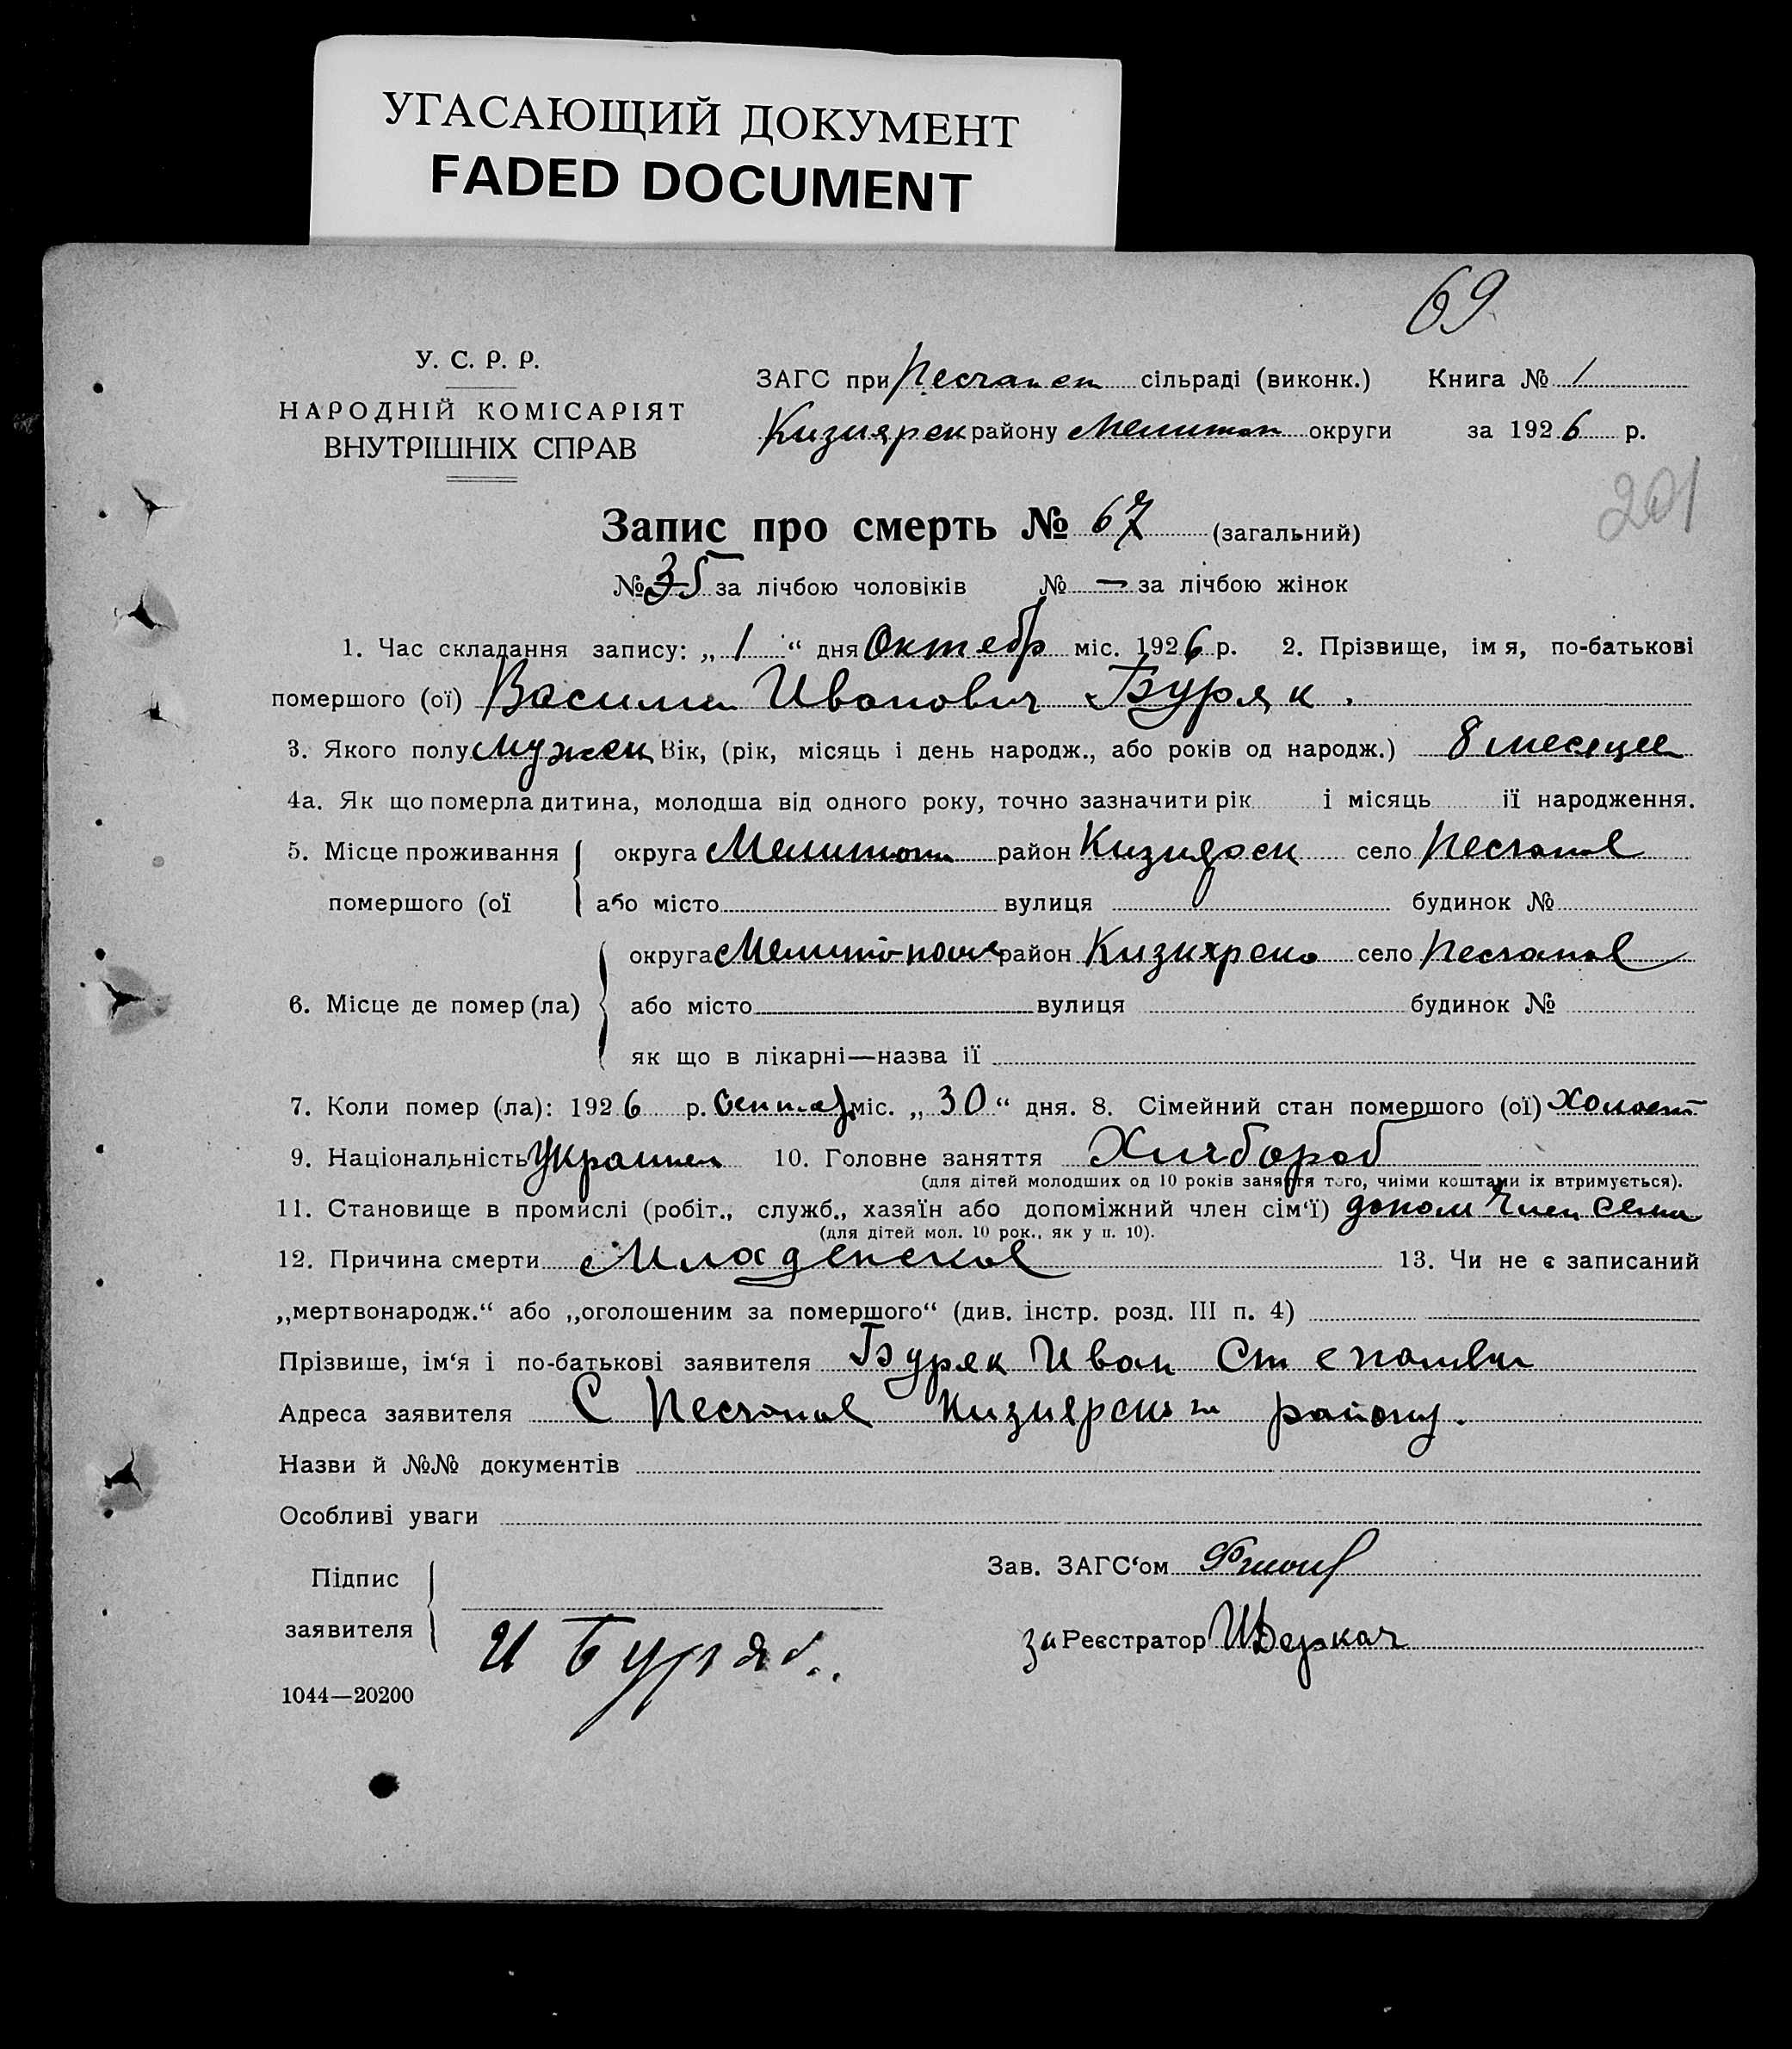 УГАСАЮЩИЙ ДОКУМЕНТ
FADED DOCUMENT
69
У. С. Р. Р.
НАРОДНІЙ КОМІСАРІЯТ
ВНУТРІШНІХ СПРАВ
ЗАГС при Песчанск сільраді (виконк.) Книга № 1
Кизиярск району Мелитоп округи за 1926 р.
201
Запис про смерть № 67 (загальний)
№ 35 за лічбою чоловіків № — за лічбою жінок
1. Час складання запису: „ 1 “ дня Октебр міс. 1926 р. 2. Прізвище, імя, по-батькові
помершого (ої) Васили Иванович Буряк.
3. Якого полу мужск Вік, (рік, місяць і день народж., або років од народж.) 8 месяцев
4а. Як що померла дитина, молодша від одного року, точно зазначити рік і місяць її народження.
5. Місце проживання округа Мелитопл район Кизиярск село Песчаное
помершого (ої або місто вулиця будинок №
округа Мелито-поля район Кизиярско село Песчаное
6. Місце де помер (ла) або місто вулиця будинок №
як що в лікарні—назва її
7. Коли помер (ла): 1926 р. Сентяб міс. „ 30 “ дня. 8. Сімейний стан помершого (ої) Холост
9. Національність Украинец 10. Головне заняття Хличбороб
(для дітей молодших од 10 років заняття того, чиїми коштами їх втримується).
11. Становище в промислі (робіт., служб., хазяїн або допоміжний член сім‘ї) допом Член семи
(для дітей мол. 10 рок., як у п. 10).
12. Причина смерти Младенское 13. Чи не є записаний
„мертвонародж.“ або „оголошеним за помершого“ (див. інстр. розд. III п. 4)
Прізвише, ім‘я і по-батькові заявителя Буряк Иван Степанович
Адреса заявителя С Песчаное Кизиярского району.
Назви й №№ документів
Особливі уваги
Підпис
заявителя И Буряк
Зав. ЗАГС‘ом
за Реєстратор ИДеркач
1044—20200